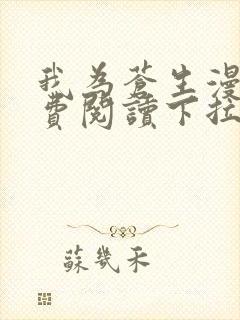 我為蒼生漫
費閱讀下拉
蘇幾禾